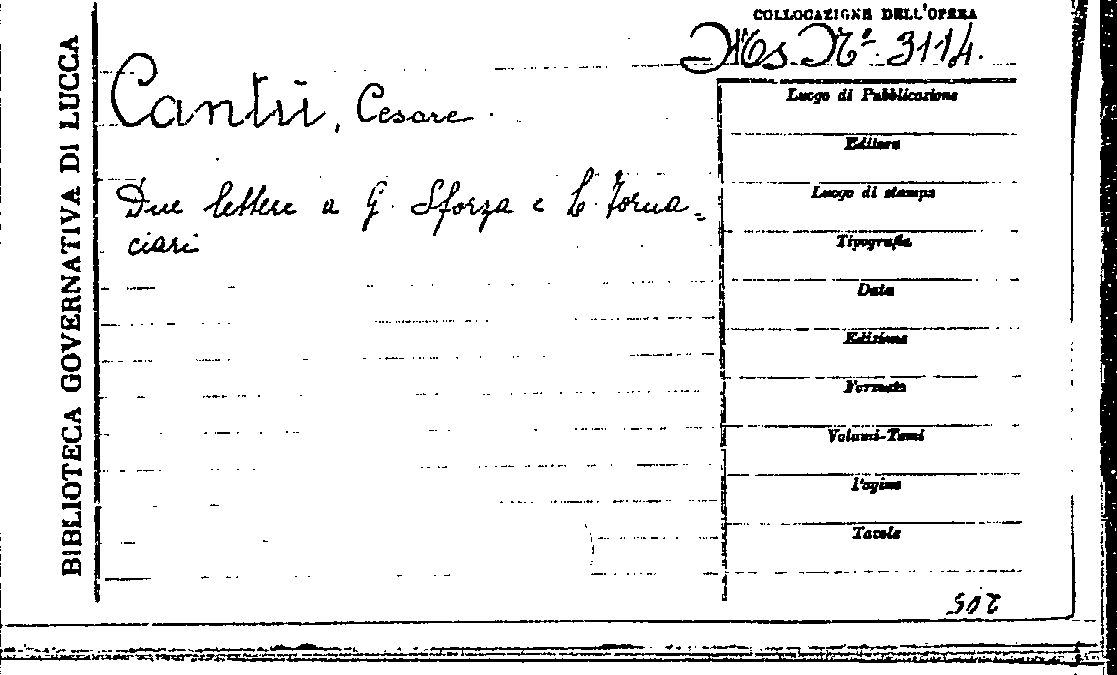 COLLOCAZIONE DELL'OPERA
Ms. Nº. 3114.
BIBLIOTECA GOVERNATIVA DI LUCCA
Cantù, Cesare.
Due lettere a G. Sforza e L. Torna=
ciari
Luogo di Pubblicazione
Editore
Luogo di stampa
Tipografia
Data
Edizione
Formato
Volumi-Tomi
Pagine
Tavole
205